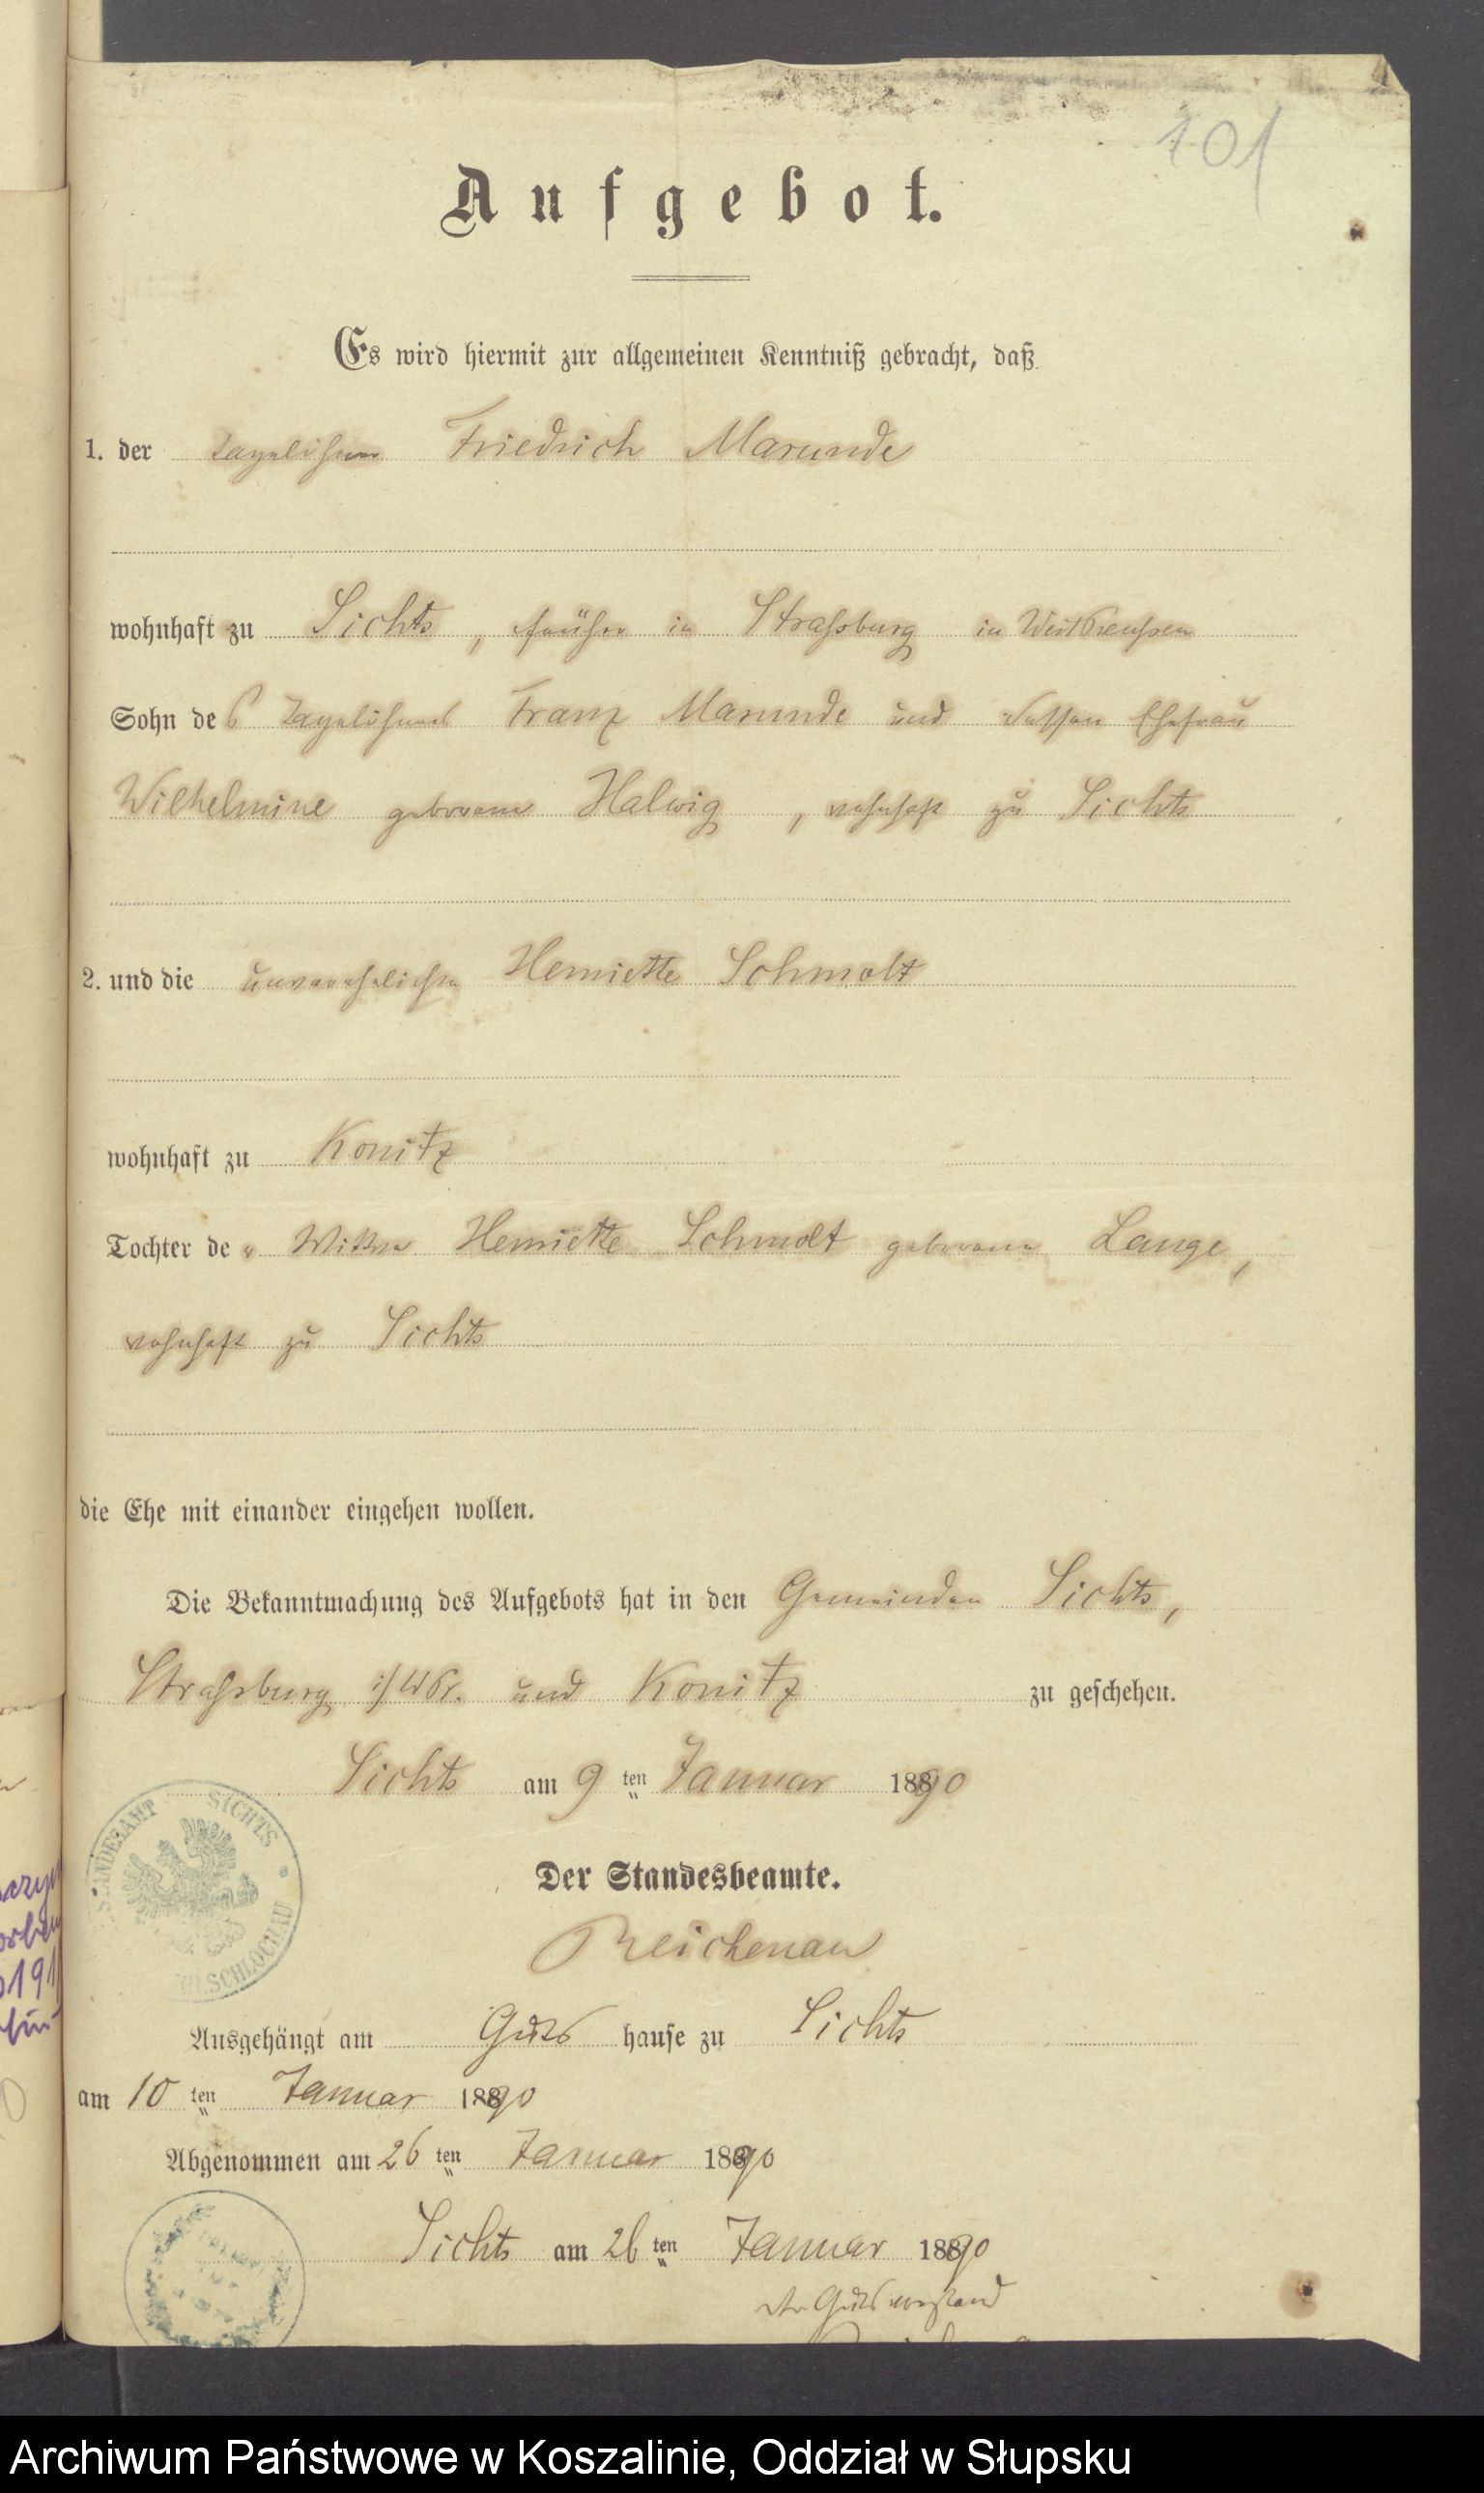 101
Aufgebot.
Es wird hiermit zur allgemeinen Kenntniß gebracht, daß
1. der Tagelöhner Friedrich Marunde
wohnhaft zu Sichts, früher in Straßburg in Westpreußen
Sohn des Tagelöhners Franz Marunde und dessen Ehefrau
Wilhelmine geborene Halwig, wohnhaft zu Sichts
2. und die unverehelichte Henriette Schmolt
wohnhaft zu Konitz
Tochter der Wittwe Henriette Schmolt geborene Lange,
wohnhaft zu Sichts
die Ehe mit einander eingehen wollen.
Die Bekanntmachung des Aufgebots hat in den Gemeinden Sichts,
Straßburg i/WPr. und Konitz zu geschehen.
Sichts am 9 ten Januar 1890
STANDESAMT SICHTS
KR. SCHLOCHAU
Der Standesbeamte.
Reichenau
Ausgehängt am Guts hause zu Sichts
am 10 ten Januar 1890
Abgenommen am 26 ten Januar 1890
Sichts am 26 ten Januar 1890
der Gutsvorstand
Archiwum Państwowe w Koszalinie, Oddział w Słupsku